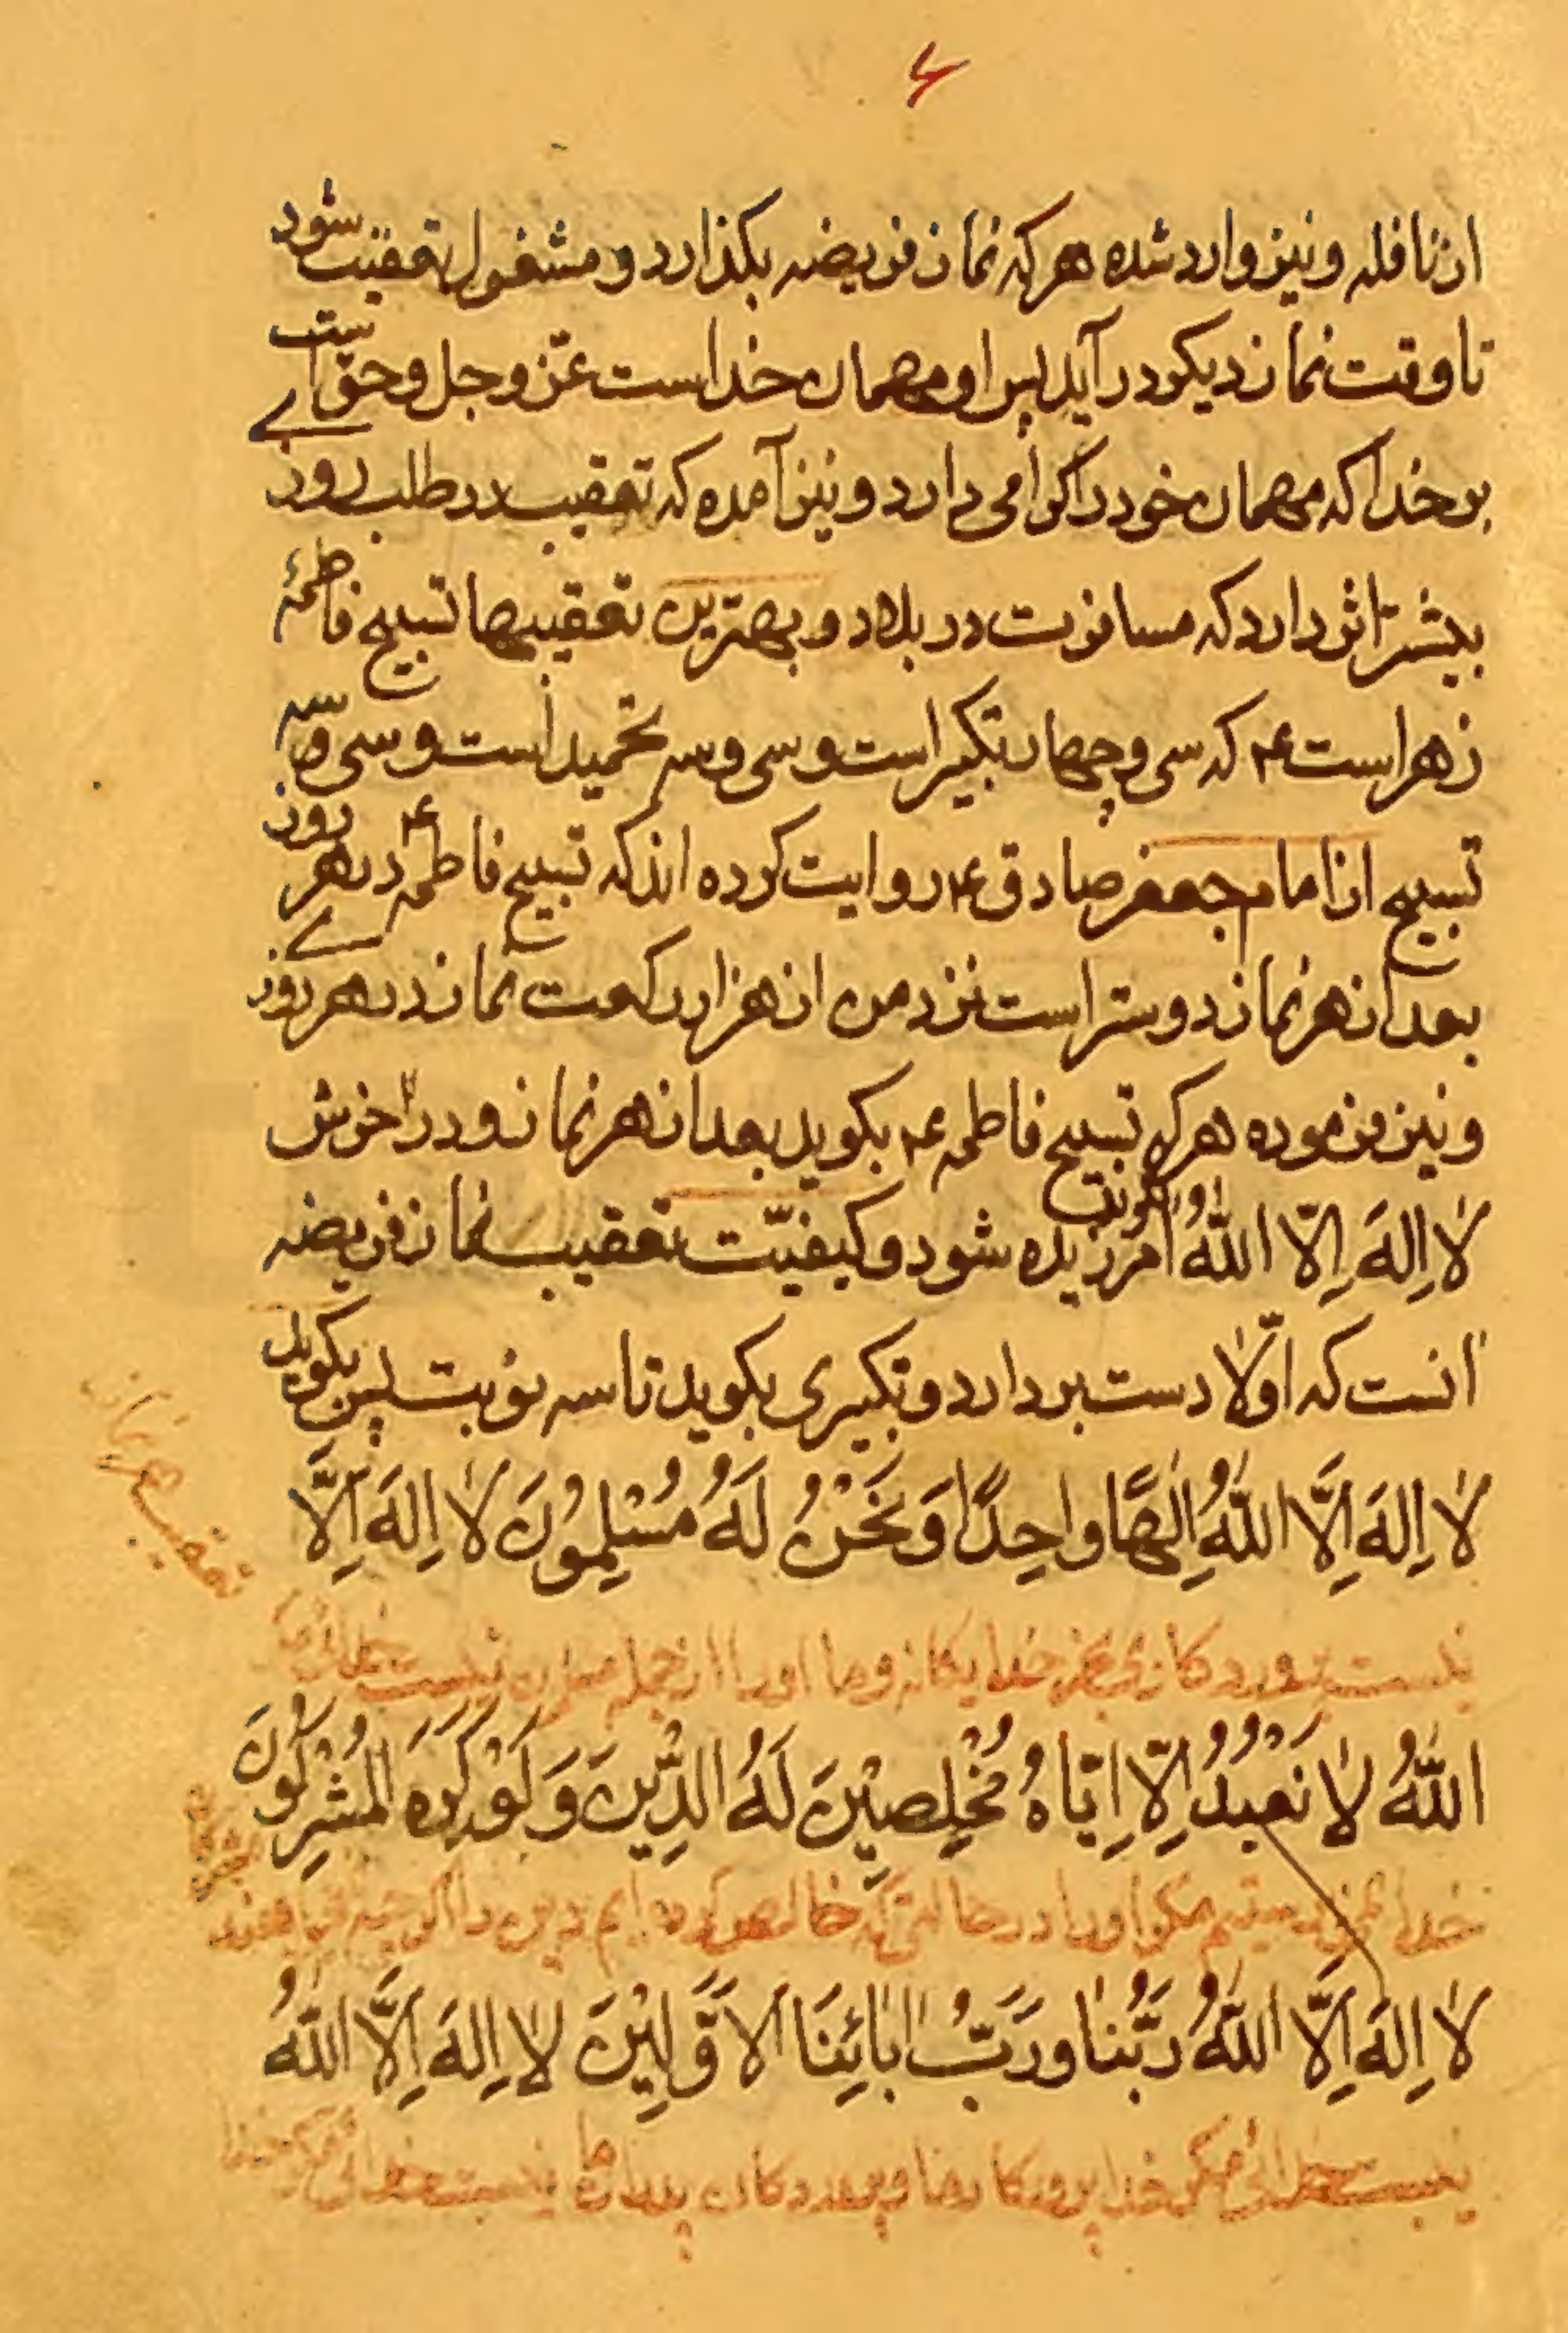 ۶
از نافله و نیز وارد شده هر که نماز فریضه بکذارد و مشغول تعقیب شود
تا وقت نماز دیکر در آید پس او مهمان خداست عزّ و جل و حق است
بر خدا که مهمان خود را کرامی دارد و نیز آمده که تعقیب در طلب روزے
بیشتر اثر دارد که مسافرت در بلاد و بهترین تعقیبها تسبیح فاطمهٔ
زهراست ع۴ که سی و چهار تکبیر است و سی و سه تحمید است و سی و سه
تسبیح از امام جعفر صادق ع۴ روایت کرده اند که تسبیح فاطمه ع۴ در هر روز
بعد از هر نماز دوستر است نزد من از هزار رکعت نماز در هر روزے
و نیز فرموده هر که تسبیح فاطمه ع۴ بکوید بعد از هر نماز و در آخرش
لا اِلهَ اِلّا اللّٰهُ کوید آمرزیده شود و کیفیّت تعقیب نماز فریضه
آنست که اوّلا دست بردارد و تکبیری بکوید تا سه نوبت پس بکوید
لا اِلهَ اِلَّا اللّٰهُ اِلٰهًا واحِدًا وَ نَحْنُ لَهُ مُسْلِمُونَ لا اِلهَ اِلَّا
تعقیب هر نماز
نیست پروردکاری بجز خدا یکانه و ما او را از جمله نیست خدائی
اللّٰهُ لا نَعْبُدُ اِلّا اِیّاهُ مُخْلِصِیْنَ لَهُ الدِّیْنَ وَ لَوْ کَرِهَ الْمُشْرِکُونَ
خدا نمی پرستیم مکر او را در حالتی که خالص کرده ایم دین را اکرچه
لا اِلهَ اِلَّا اللّٰهُ رَبُّنا و رَبُّ اٰبائِنَا الاَوَّلِیْنَ لا اِلهَ اِلَّا اللّٰهُ
نیست خدائی مکر خدا پروردکار ما و پروردکار پدران ما نیست خدائی مکر خدا